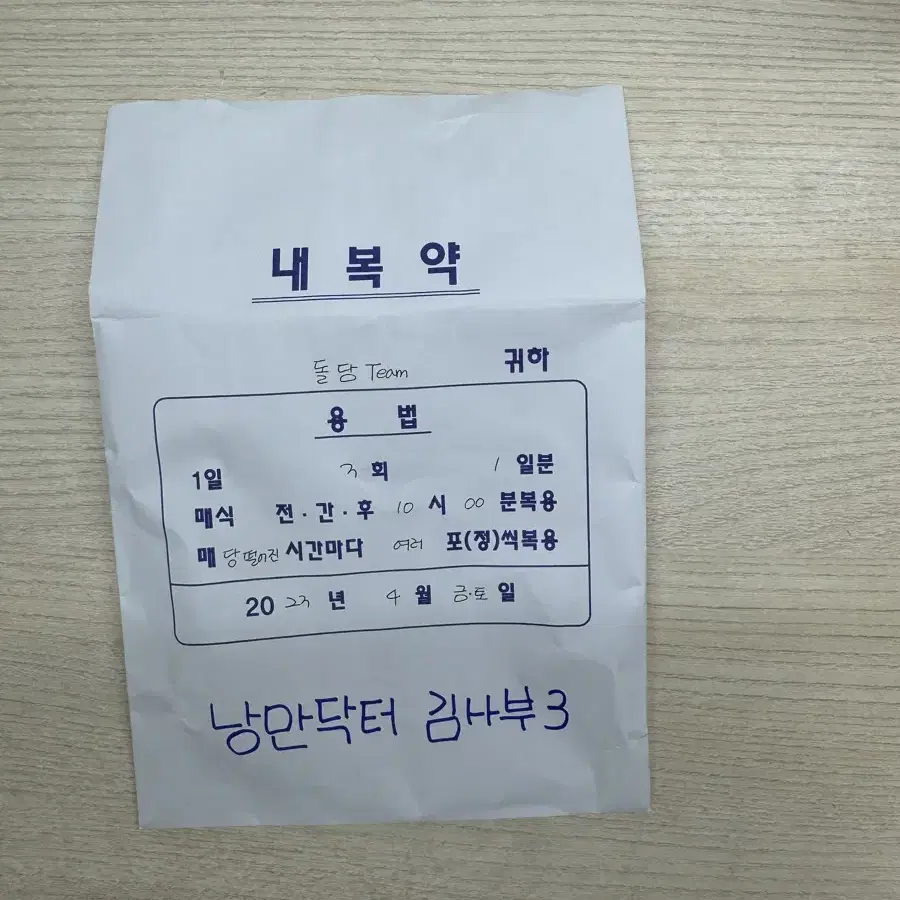 내 복 약
돌담 Team 귀하
용 법
1일 3 회 1 일분
매식 전·간·후 10 시 00 분복용
매 당떨어진 시간마다 여러 포(정)씩복용
20 23 년 4 월 금·토 일
낭만닥터 김사부3